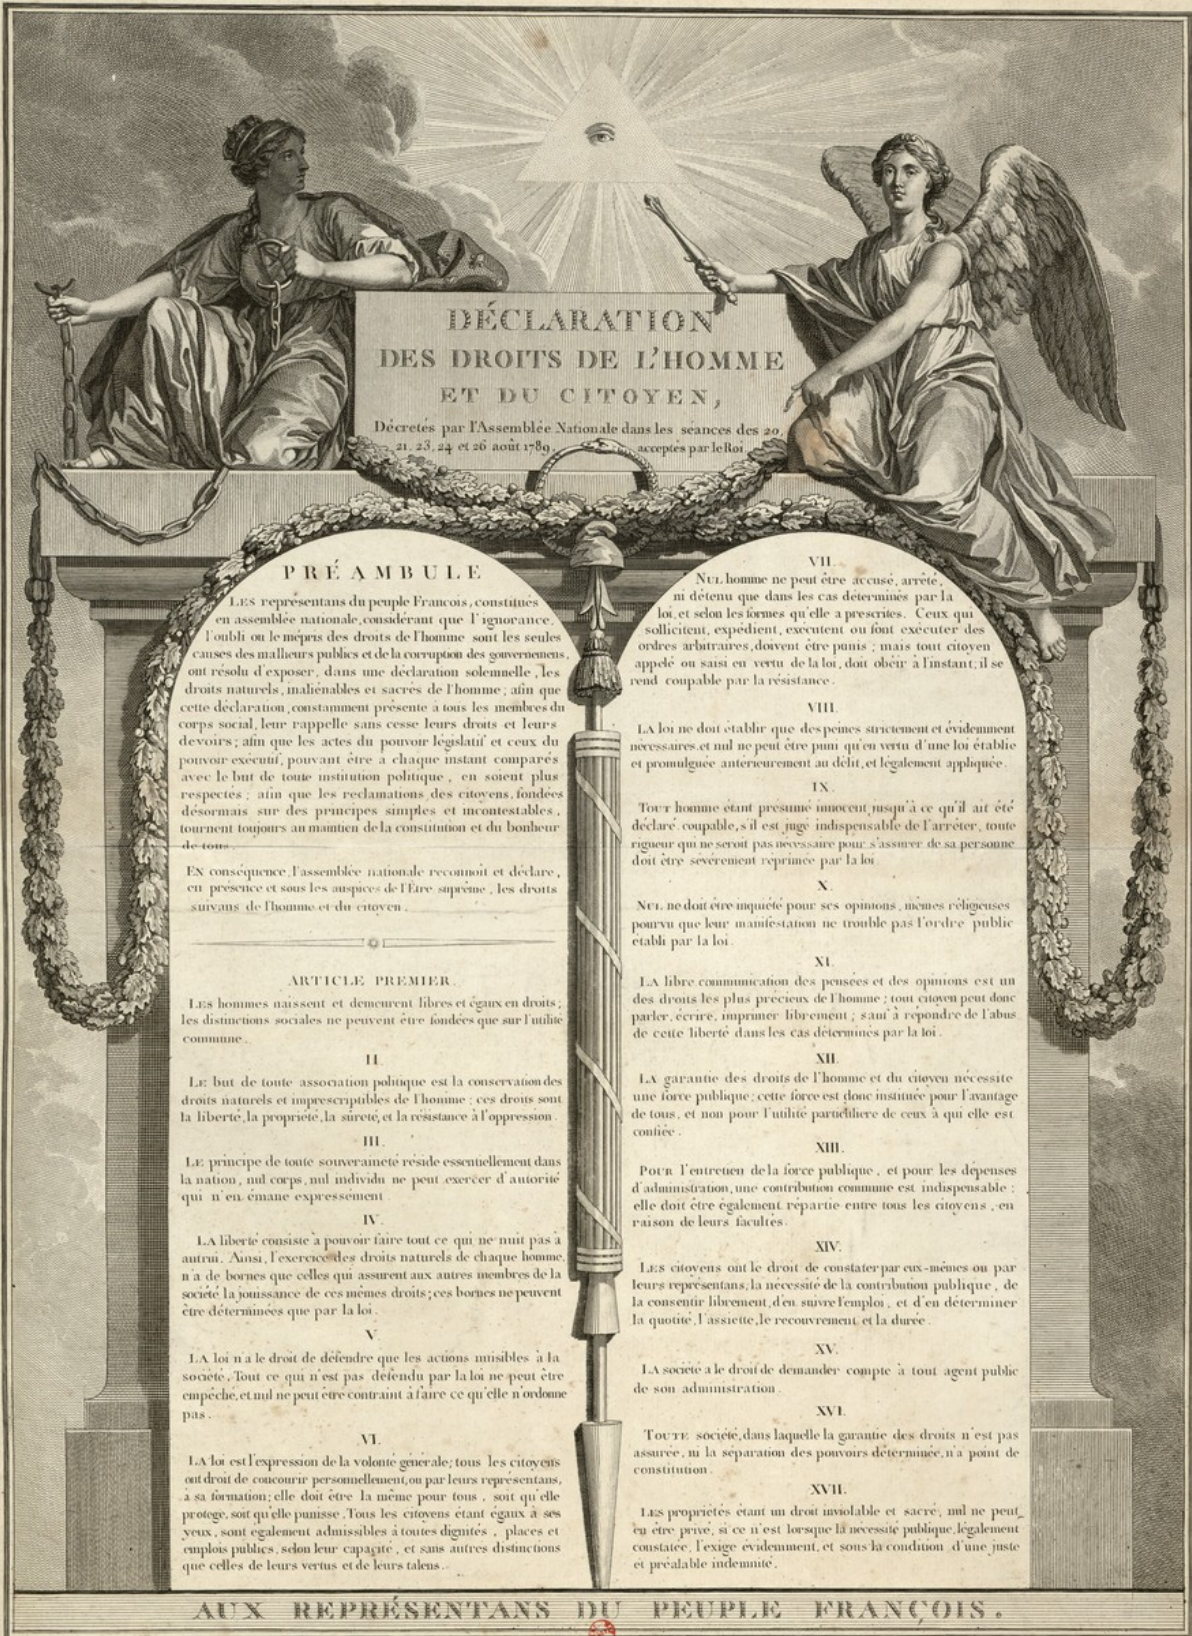 DÉCLARATION
DES DROITS DE L'HOMME
ET DU CITOYEN,
Décretés par l'Assemblée Nationale dans les séances des 20,
21. 23, 24 et 26 août 1789, acceptés par le Roi
PRÉAMBULE
LES représentans du peuple Francois, constitués
en assemblée nationale, considérant que l'ignorance,
l'oubli ou le mépris des droits de l'homme sont les seules
causes des malheurs publics et de la corruption des gouvernemens,
ont résolu d'exposer, dans une déclaration solemnelle, les
droits naturels, inaliénables et sacrés de l'homme; afin que
cette déclaration, constamment présente à tous les membres du
corps social, leur rappelle sans cesse leurs droits et leurs
devoirs; afin que les actes du pouvoir législatif et ceux du
pouvoir exécutif, pouvant être a chaque instant comparés
avec le but de toute institution politique, en soient plus
respectés; afin que les reclamations des citoyens, fondées
désormais sur des principes simples et incontestables,
tournent toujours au maintien de la constitution et du bonheur
de tous.
EN conséquence, l'assemblée nationale reconnoit et déclare,
en présence et sous les auspices de l'Etre suprême, les droits
suivans de l'homme et du citoyen.
ARTICLE PREMIER.
LES hommes naissent et demeurent libres et égaux en droits;
les distinctions sociales ne peuvent être fondées que sur l'utilité
commune.
II.
LE but de toute association politique est la conservation des
droits naturels et imprescriptibles de l'homme; ces droits sont
la liberté, la propriété, la sureté, et la résistance à l'oppression.
III.
LE principe de toute souveraineté réside essentiellement dans
la nation, nul corps, nul individu ne peut exercer d'autorité
qui n'en émane expressément.
IV.
LA liberté consiste à pouvoir faire tout ce qui ne nuit pas à
autrui. Ainsi, l'exercice des droits naturels de chaque homme,
n'a de bornes que celles qui assurent aux autres membres de la
société la jouissance de ces mêmes droits; ces bornes ne peuvent
être déterminées que par la loi.
V.
LA loi n'a le droit de défendre que les actions nuisibles à la
société. Tout ce qui n'est pas défendu par la loi ne peut être
empêché, et nul ne peut être contraint à faire ce qu'elle n'ordonne
pas.
VI.
LA loi est l'expression de la volonté générale; tous les citoyens
ont droit de concourir personnellement, ou par leurs représentans,
à sa formation; elle doit être la même pour tous, soit qu'elle
protege, soit qu'elle punisse. Tous les citoyens étant égaux à ses
yeux, sont également admissibles à toutes dignités, places et
emplois publics, selon leur capacité, et sans autres distinctions
que celles de leurs vertus et de leurs talens.
VII.
NUL homme ne peut être accusé, arrêté,
ni détenu que dans les cas déterminés par la
loi, et selon les formes qu'elle a prescrites. Ceux qui
sollicitent, expédient, exécutent ou font exécuter des
ordres arbitraires, doivent être punis; mais tout citoyen
appelé ou saisi en vertu de la loi, doit obéir à l'instant; il se
rend coupable par la résistance.
VIII.
LA loi ne doit établir que des peines strictement et évidemment
nécessaires, et nul ne peut être puni qu'en vertu d'une loi établie
et promulguée antérieurement au délit, et légalement appliquée.
IX.
TOUT homme étant présumé innocent jusqu'à ce qu'il ait été
déclaré coupable, s'il est jugé indispensable de l'arrêter, toute
rigueur qui ne seroit pas nécessaire pour s'assurer de sa personne
doit être sévèrement réprimée par la loi.
X.
NUL ne doit être inquiété pour ses opinions, mêmes réligieuses
pourvu que leur manifestation ne trouble pas l'ordre public
établi par la loi.
XI.
LA libre communication des pensées et des opinions est un
des droits les plus précieux de l'homme; tout citoyen peut donc
parler, écrire, imprimer librement; sauf à répondre de l'abus
de cette liberté dans les cas déterminés par la loi.
XII.
LA garantie des droits de l'homme et du citoyen nécessite
une force publique; cette force est donc instituée pour l'avantage
de tous, et non pour l'utilité particuliere de ceux à qui elle est
confiée.
XIII.
POUR l'entretien de la force publique, et pour les dépenses
d'administration, une contribution commune est indispensable;
elle doit être également répartie entre tous les citoyens, en
raison de leurs facultés.
XIV.
LES citoyens ont le droit de constater par eux-mêmes ou par
leurs représentans, la nécessité de la contribution publique, de
la consentir librement, d'en suivre l'emploi, et d'en déterminer
la quotité, l'assiette, le recouvrement et la durée.
XV.
LA société a le droit de demander compte à tout agent public
de son administration.
XVI.
TOUTE société, dans laquelle la garantie des droits n'est pas
assurée, ni la séparation des pouvoirs déterminée, n'a point de
constitution.
XVII.
LES propriétés étant un droit inviolable et sacré, nul ne peut
en être privé, si ce n'est lorsque la nécessité publique, légalement
constatée, l'exige évidemment, et sous la condition d'une juste
et préalable indemnité.
AUX REPRÉSENTANS DU PEUPLE FRANÇOIS.